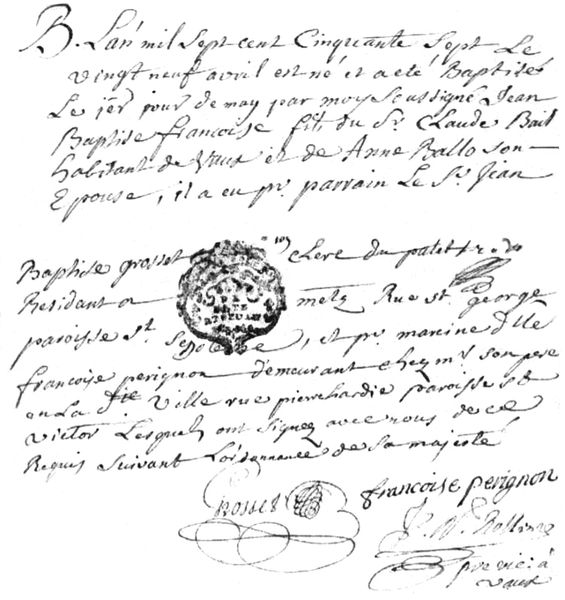 B. L'an mil sept cent Cinquante sept Le
vingt neuf avril est né et a eté Baptisé
Le 1er jour de may par moy Soussigné Jean
Baptise françoise fils du Sr. Claude Bail
habitant de Vaux et de Anne Ballo son
Epouse, il a eu pr. parrain Le Sr. Jean
Baptise grosset clerc du palet
Residant a metz Rue st. George
paroisse st. , et pr. mareine dlle
françoise perignon demeurant chez mr son pere
en La dte Ville rue pierrehardie paroisse st
victor Lesquels ont signez avec nous de ce
Requis suivant L'ordonnance de sa majesté
Grosset françoise perignon
vaux